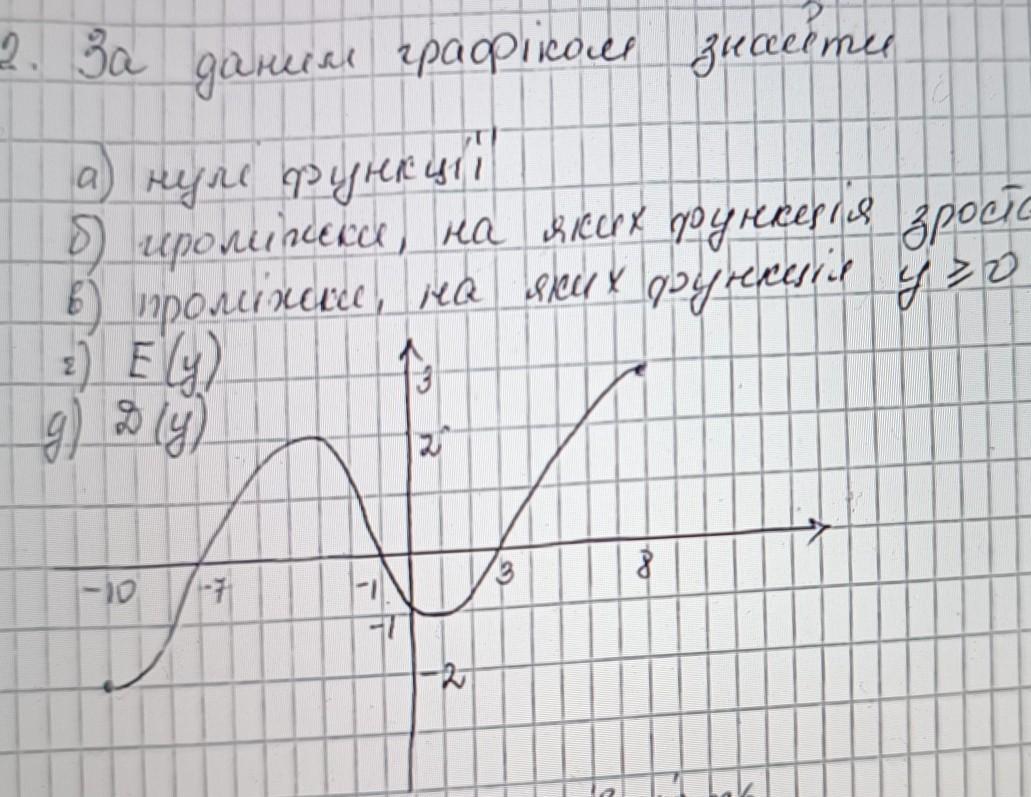 2. За даним графіком знайти
а) нулі функції
б) проміжки, на яких функція
в) проміжки, на яких функція y ≥ 0
г) E(y)
д) D(y)
3
2
-10 -7 -1 3 8
-1
-2